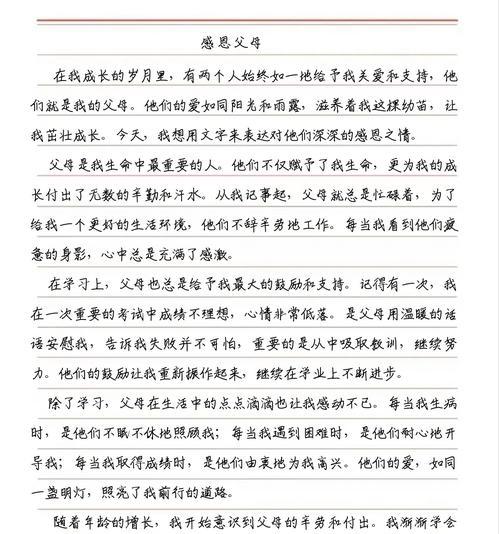 感恩父母
在我成长的岁月里，有两个人始终如一地给予我关爱和支持，他
们就是我的父母。他们的爱如同阳光和雨露，滋养着我这棵幼苗，让
我茁壮成长。今天，我想用文字来表达对他们深深的感恩之情。
父母是我生命中最重要的人。他们不仅赋予了我生命，更为我的成
长付出了无数的辛勤和汗水。从我记事起，父母就总是忙碌着，为了
给我一个更好的生活环境，他们不辞辛劳地工作。每当我看到他们疲
惫的身影，心中总是充满了感激。
在学习上，父母也总是给予我最大的鼓励和支持。记得有一次，我
在一次重要的考试中成绩不理想，心情非常低落。是父母用温暖的话
语安慰我，告诉我失败并不可怕，重要的是从中吸取教训，继续努
力。他们的鼓励让我重新振作起来，继续在学业上不断进步。
除了学习，父母在生活中的点点滴滴也让我感动不已。每当我生病
时，是他们不眠不休地照顾我；每当我遇到困难时，是他们耐心地开
导我；每当我取得成绩时，是他们由衷地为我高兴。他们的爱，如同
一盏明灯，照亮了我前行的道路。
随着年龄的增长，我开始意识到父母的辛劳和付出。我渐渐学会